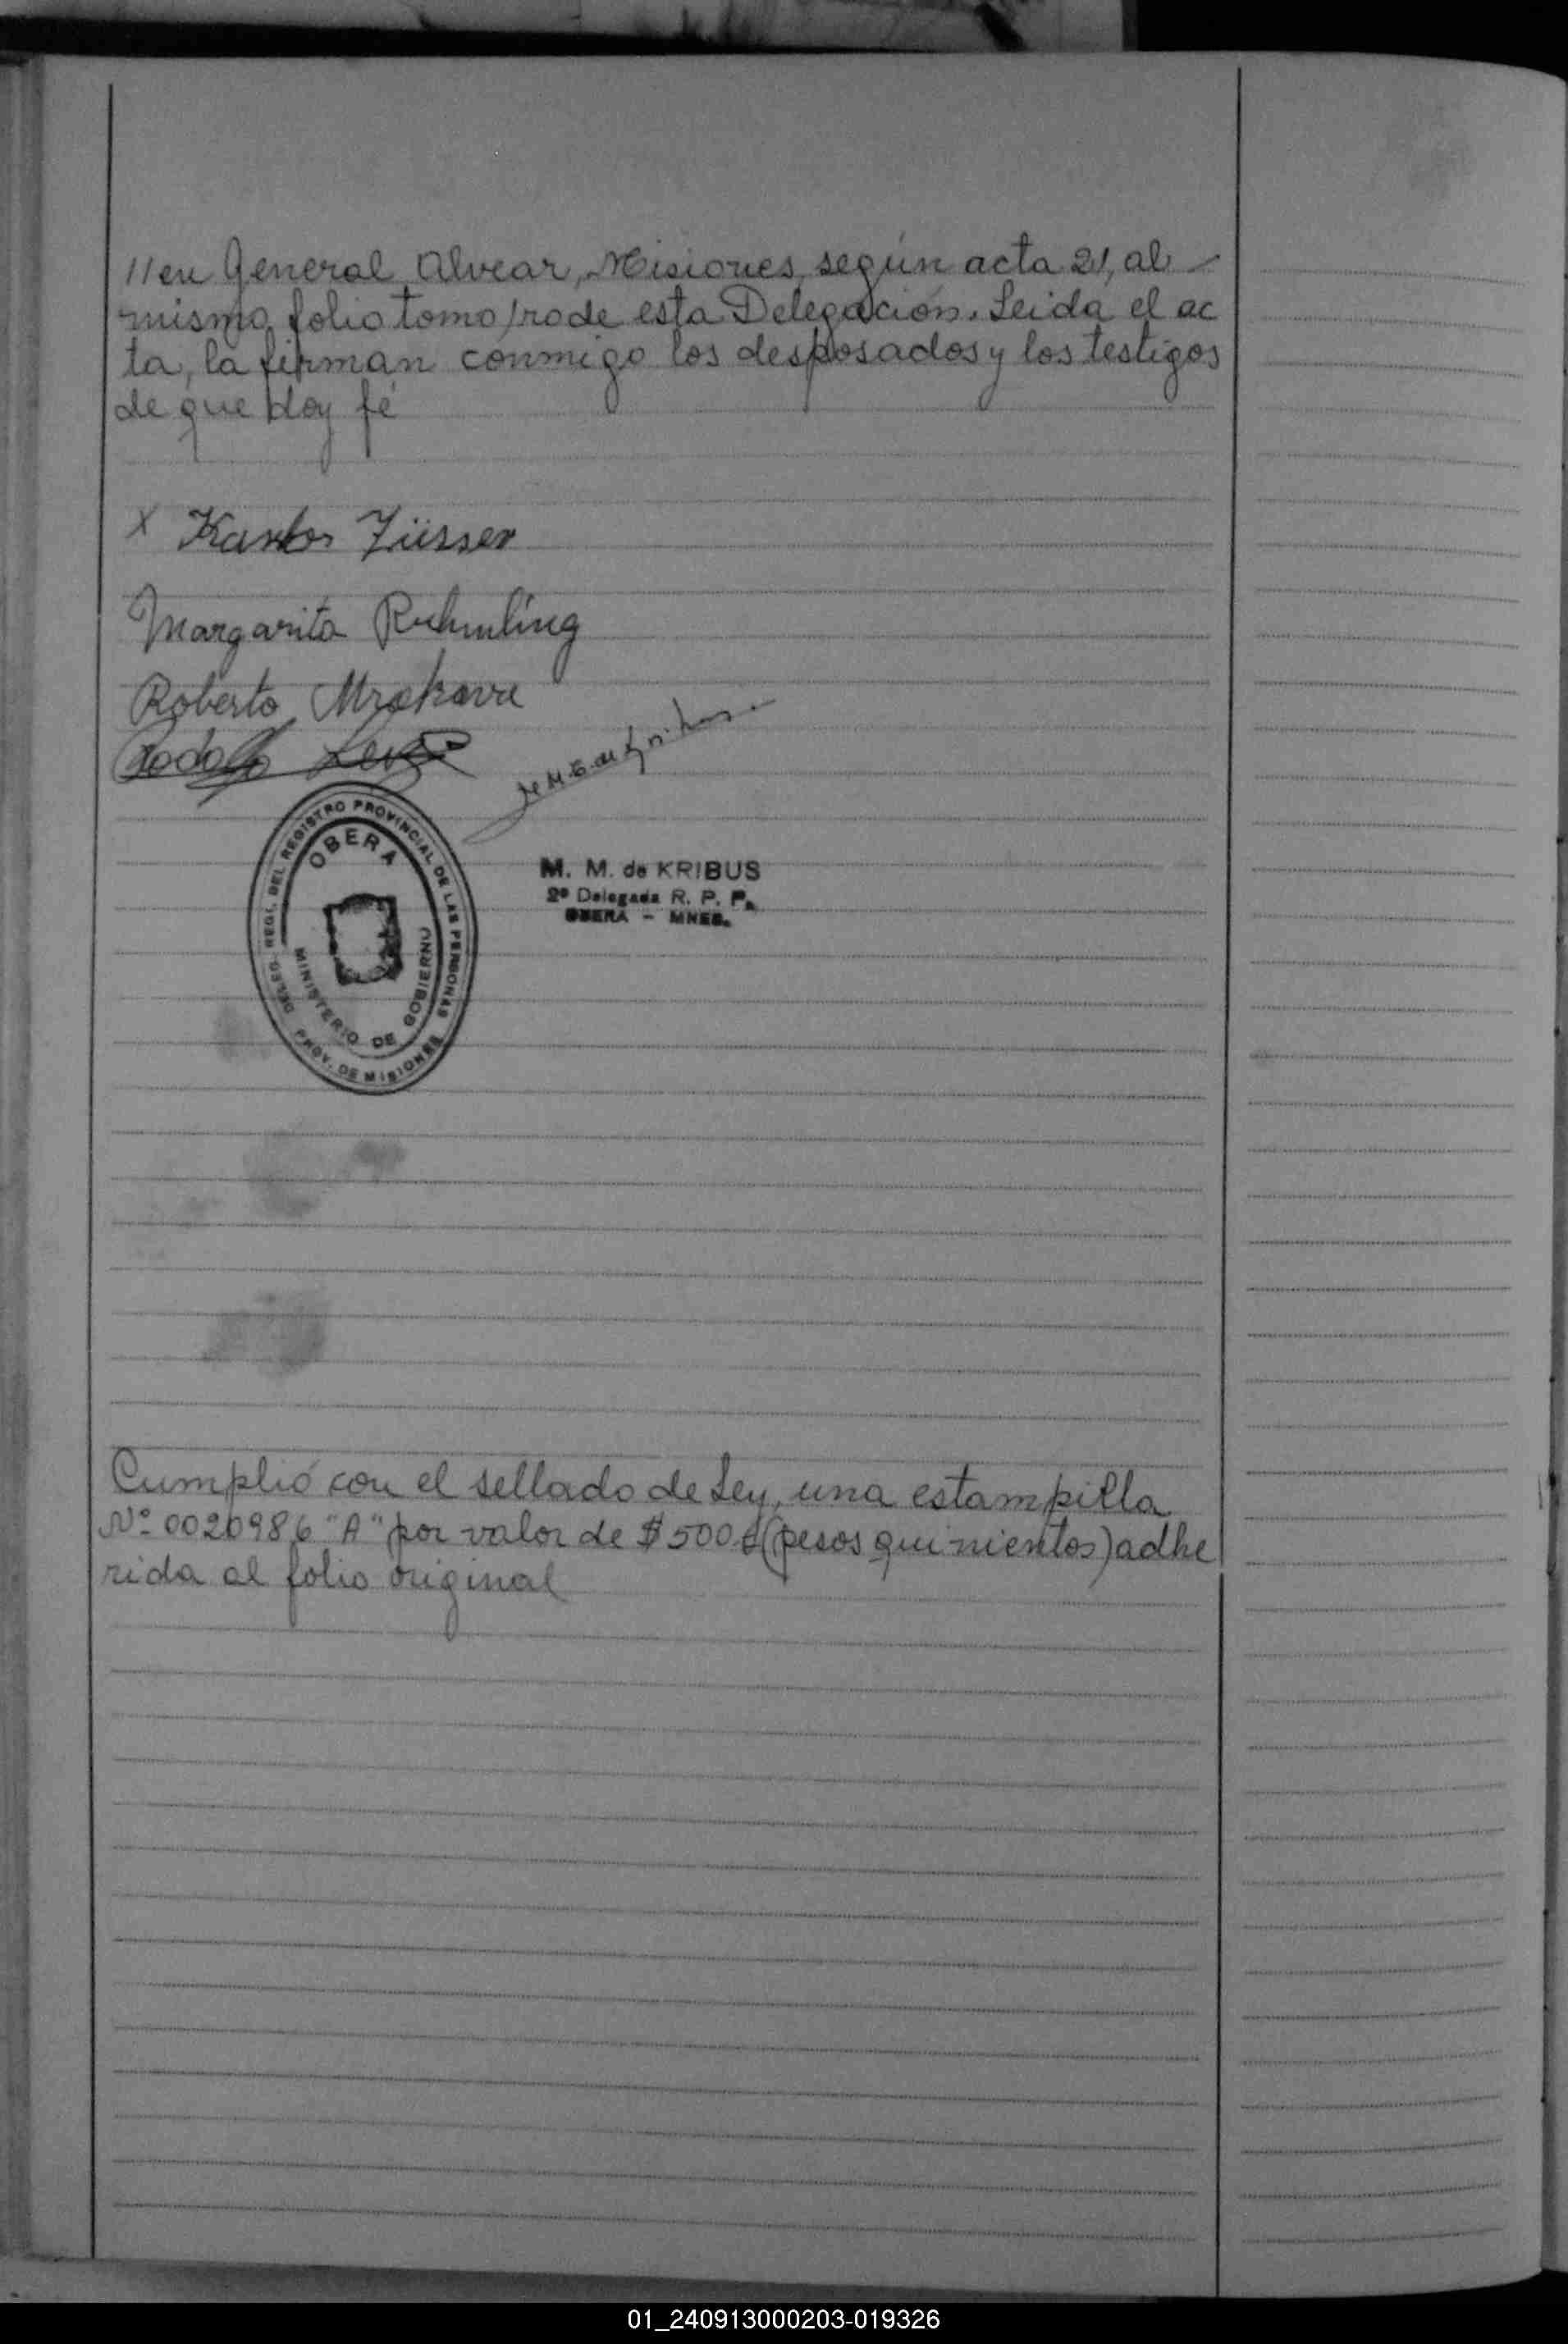 //en General Alvear, Misiones, según acta 21, al
mismo folio tomo 1ro de esta Delegación. Leida el ac
ta, la firman conmigo los desposados y los testigos
de que doy fé
X Karlos Züsser
Margarita Ruhmling
Roberto
Rodolfo
OBERA
DELEG. REGl. DEL REGISTRO PROVINCIAL DE LAS PERSONAS
MINISTERIO DE GOBIERNO
PROV. DE MISIONES
M. M. de KRIBUS
2ª Delegada R. P. P.
OBERA - MNES.
Cumplió con el sellado de Ley, una estampilla
Nº 0020986 "A" por valor de $ 500 (pesos quinientos) adhe
rida al folio original
01_240913000203-019326